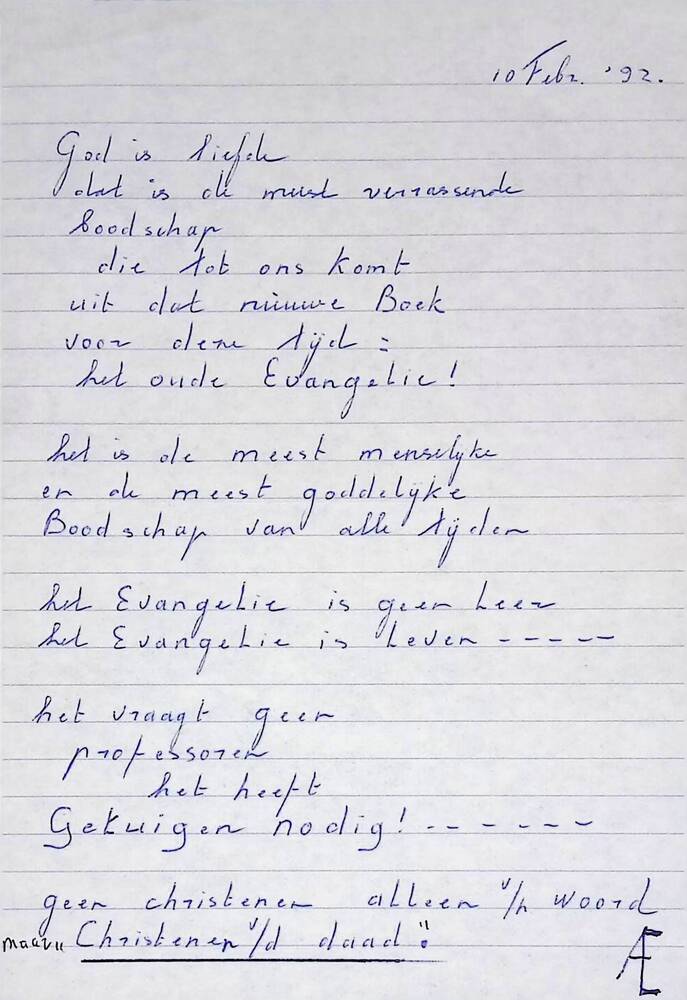 10 Febr. '92.
God is liefde
dat is de meest verrassende
boodschap
die tot ons komt
uit dat nieuwe Boek
voor deze tijd :
het oude Evangelie!
het is de meest menselijke
en de meest goddelijke
Boodschap van alle tijden
het Evangelie is geen Leer
het Evangelie is Leven -----
het vraagt geen
professoren
het heeft
Getuigen nodig! ------
geen christenen alleen v/h woord
maar „ Christenen v/d daad"!
Æ